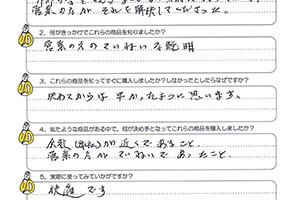 営業の方が、それを解決してくださった。
2、何がきっかけでこれらの商品を知りましたか?
営業の方のていねいな説明
3、これらの商品を知ってすぐに購入しましたか?しなかったとしたらなぜですか?
決めてからは早かったように思います。
4、似たような商品がある中で、何が決め手となってこれらの商品を購入しましたか?
が近くであること。
営業の方がていねいであったこと。
5、実際に使ってみていかがですか?
快適です